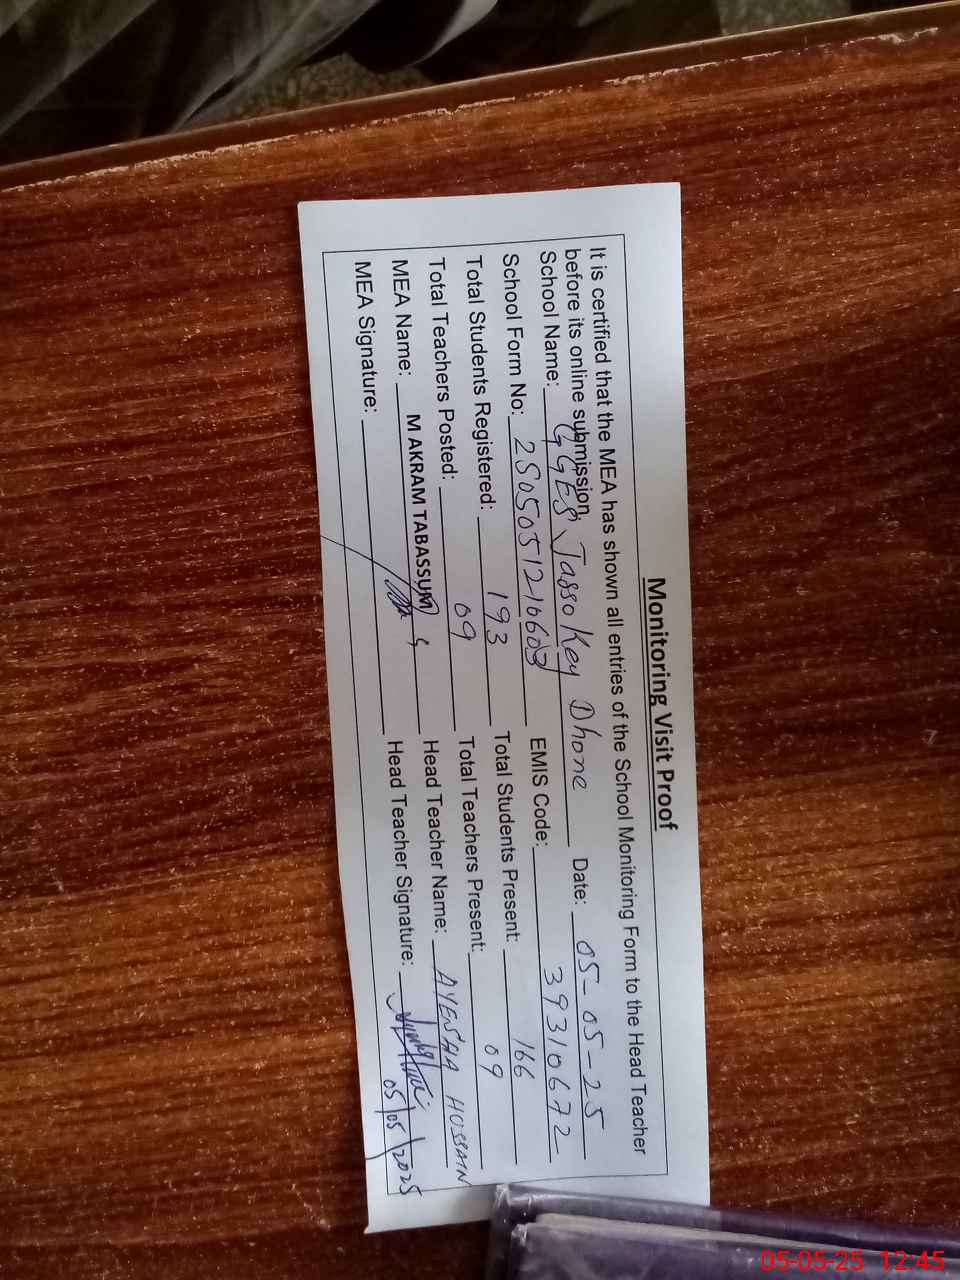 Monitoring Visit Proof
It is certified that the MEA has shown all entries of the School Monitoring Form to the Head Teacher
before its online submission.
School Name: GGES Jasso Key Dhone Date: 05-05-25
School Form No: EMIS Code: 39310672
Total Students Registered: 193 Total Students Present: 166
Total Teachers Posted: 09 Total Teachers Present: 09
MEA Name: M AKRAM TABASSUM Head Teacher Name: AYESHA HUSSAIN
MEA Signature: Head Teacher Signature:
05/05/2025
05-05-25 12:45